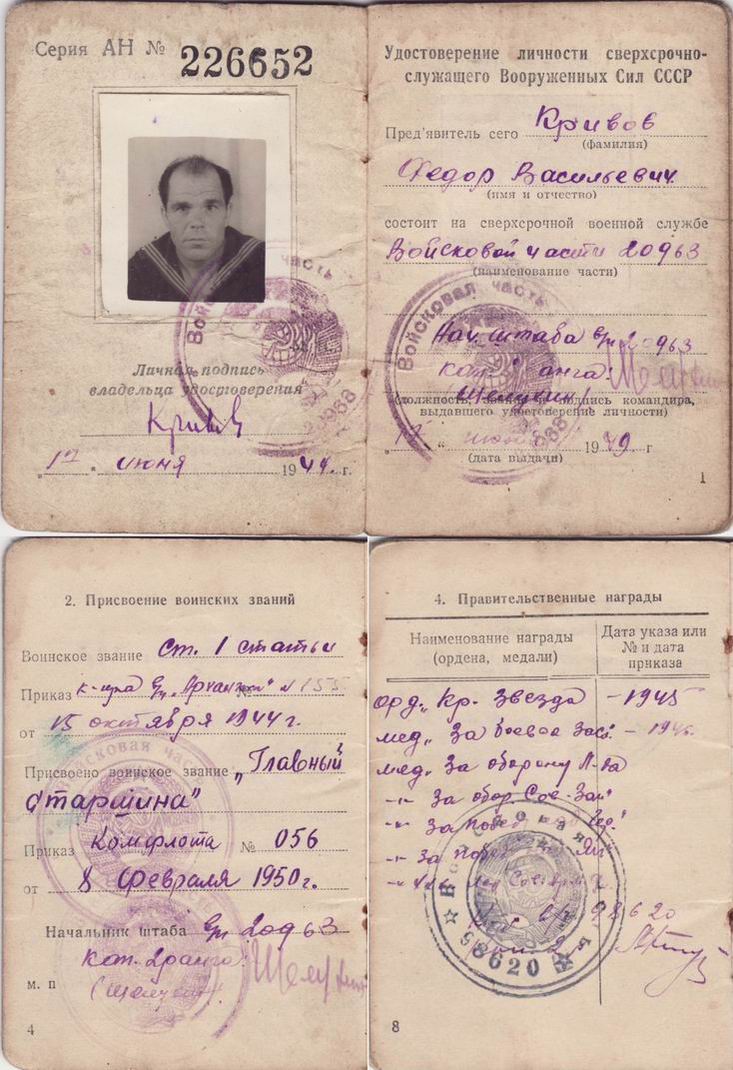 Серия АН № 226652
Личная подпись
владельца удостоверения
Кривов
"17" июня 1949 г.
Удостоверение личности сверхсрочно-
служащего Вооруженных Сил СССР
Пред'явитель сего Кривов
(фамилия)
Федор Васильевич
(имя и отчество)
состоит на сверхсрочной военной службе
Войсковой части 20963
(наименование части)
Войсковая часть
Нач. штаба в/ч 20963
кап. ранга
(Шелухин)
(должность, звание и подпись командира,
выдавшего удостоверение личности)
июня 1949 г
(дата выдачи)
1
2. Присвоение воинских званий
Воинское звание ст. 1 статьи
Приказ к-ира № 155
от 15 октября 1944 г.
Присвоено воинское звание "Главный
старшина"
Приказ Комфлота № 056
от 8 февраля 1950 г.
Начальник штаба в/ч 20963
кап. 2 ранга
м. п
4
4. Правительственные награды
Наименование награды
(ордена, медали)
Дата указа или
№ и дата
приказа
орд. Кр. Звезда - 1945
мед. За боевые засл.
мед. За оборону Л-да
-"- За обор. Сов. Зап.
-"- За побед
-"- За побед
в/ч 98620
98620
8